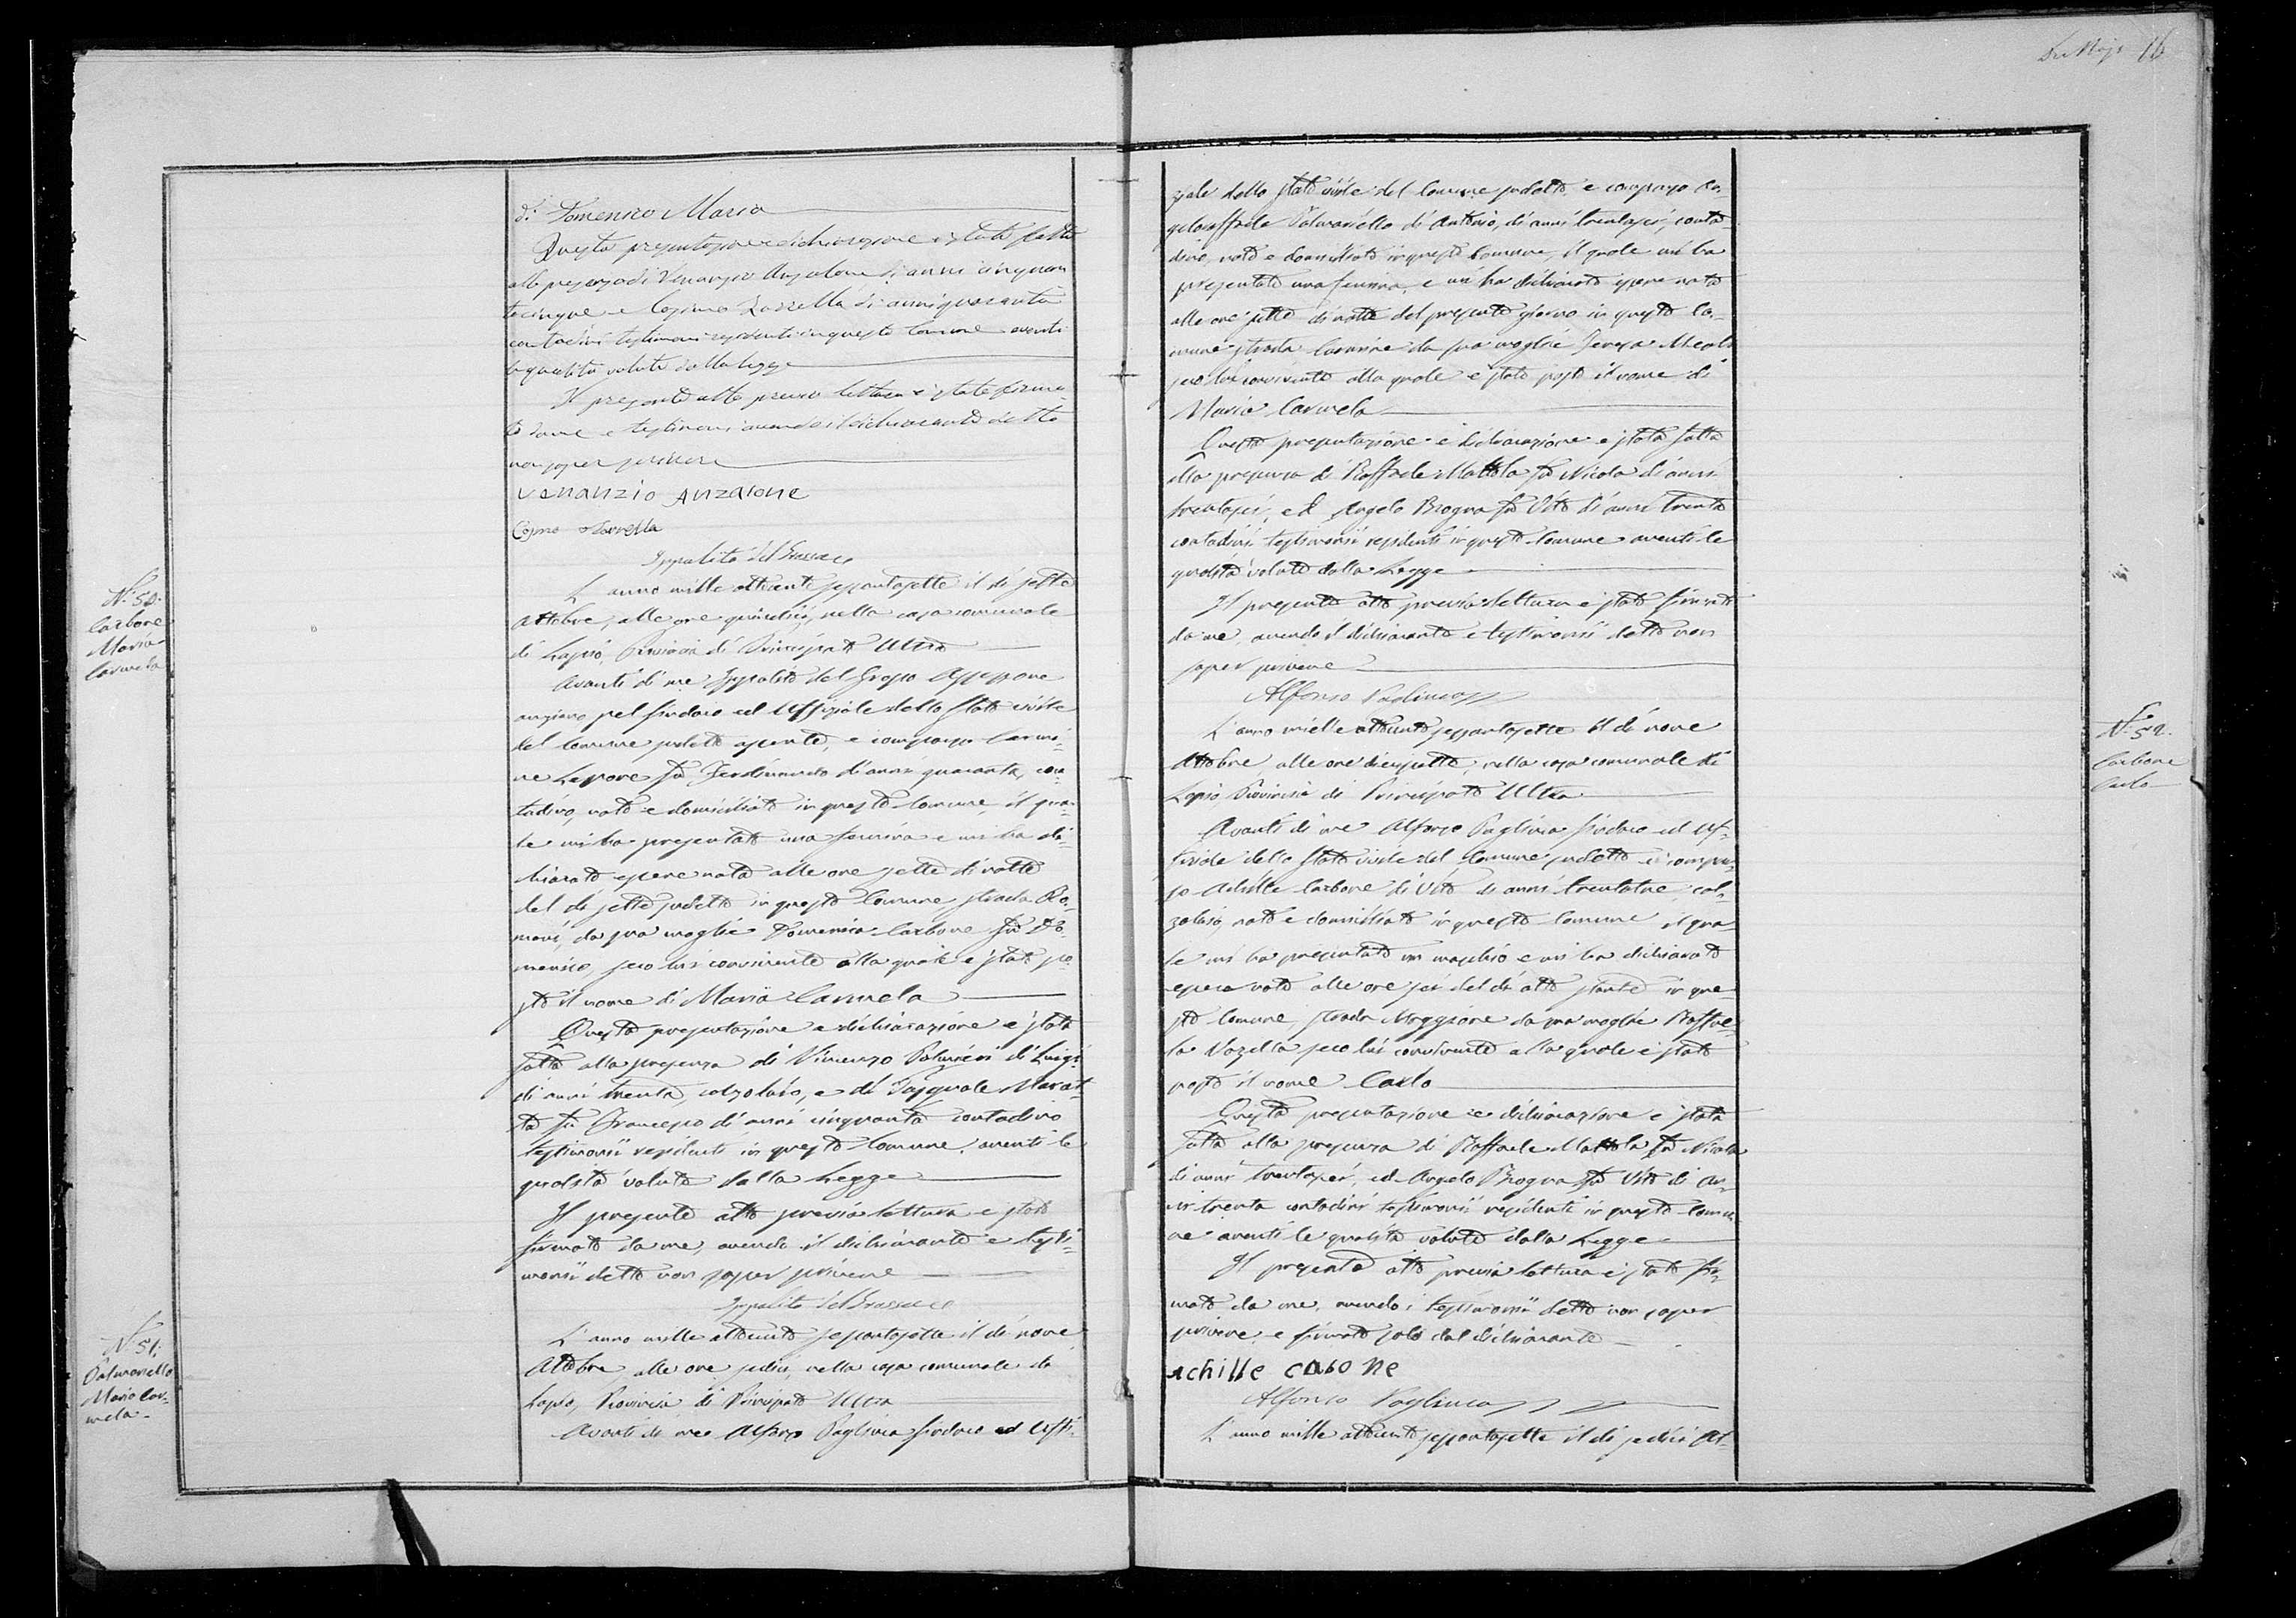 16
di Domenico Maria
Questa presentazione e dichiarazione è stata fatta
alla presenza di Venanzio Anzalone di anni cinquan
tacinque e Cosimo Zarrella di anni quaranta
contadini testimoni residenti in questo Comune aventi
le qualità volute dalla legge
Il presente atto previa lettura è stato firma-
to da me e testimoni avendo il dichiarante detto
non saper scrivere
Venanzio Anzalone
Cosmo Zarrella
Ippolito del Grosso
N. 50.
Carbone
Maria
Carmela
L'anno mille ottocento sessantasette il dì sette
Ottobre, alle ore quindici, nella casa comunale
di Lapio, Provincia di Principato Ultra
Avanti di me Ippolito del Grosso Assessore
anziano pel Sindaco ed Uffiziale dello Stato Civile
del Comune sudetto assente, è comparso Carmi-
ne Lepore fu Ferdinando di anni quaranta, con-
tadino, nato e domiciliato in questo Comune, il qua-
le mi ha presentato una femina e mi ha di-
chiarato essere nata alle ore sette di notte
del dì sette sudetto in questo Comune, strada Ro-
mani, da sua moglie Domenica Carbone fu Do-
menico, seco lui convivente alla quale è stato po-
sto il nome di Maria Carmela
Questa presentazione e dichiarazione è stata
fatta alla presenza di Vincenzo di Luigi
di anni trenta, calzolaio, e di Pasquale
fu Francesco di anni cinquanta contadino
testimonii residenti in questo Comune, aventi le
qualità volute dalla Legge
Il presente atto previa lettura è stato
firmato da me, avendo il dichiarante e testi-
monii detto non saper scrivere
Ippolito del Grosso
N. 51.
Palmariello
Maria Car-
mela
L'anno mille ottocento sessantasette il dì nove
Ottobre, alle ore sedici, nella casa comunale di
Lapio, Provincia di Principato Ultra
Avanti di me Alfonso Pagliuca Sindaco ed Uffi-
ziale dello Stato Civile del Comune sudetto, è comparso An-
gelo Raffaele Palmariello di Antonio, di anni trentasei, conta-
dino, nato e domiciliato in questo Comune, il quale mi ha
presentato una femina, e mi ha dichiarato essere nata
alle ore sette di notte del presente giorno in questo Co-
mune strada Carmine da sua moglie Teresa
seco lui convivente alla quale è stato posto il nome di
Maria Carmela
Questa presentazione e dichiarazione è stata fatta
alla presenza di Raffaele Mattola fu Nicola di anni
trentasei, ed Angelo Brogna fu Vito di anni trenta
contadini testimonii residenti in questo Comune aventi le
qualità volute dalla Legge
Il presente atto previa lettura è stato firmato
da me, avendo il dichiarante e testimonii detto non
saper scrivere
Alfonso Pagliuca
N. 52.
Carbone
Carlo
L'anno mille ottocento sessantasette il dì nove
Ottobre, alle ore diciasette, nella casa comunale di
Lapio Provincia di Principato Ultra
Avanti di me Alfonso Pagliuca Sindaco ed Uf-
fiziale dello Stato Civile del Comune sudetto è compar-
so Achille Carbone di Vito di anni trentatre, cal-
zolaio, nato e domiciliato in questo Comune il qua-
le mi ha presentato un maschio e mi ha dichiarato
essere nato alle ore sei del dì otto stante in que-
sto Comune, strada Maggiore da sua moglie Raffae-
la seco lui convivente alla quale è stato
posto il nome Carlo
Questa presentazione e dichiarazione è stata
fatta alla presenza di Raffaele Mattola fu Nicola
di anni trentasei, ed Angelo Brogna fu Vito di an-
ni trenta contadini testimonii residenti in questo Comu-
ne aventi le qualità volute dalla Legge
Il presente atto previa lettura è stato fir-
mato da me, avendo i testimonii detto non saper
scrivere, e firmato solo dal dichiarante
Achille Cabone
Alfonso Pagliuca
L'anno mille ottocento sessantasette il dì sedici Ot-